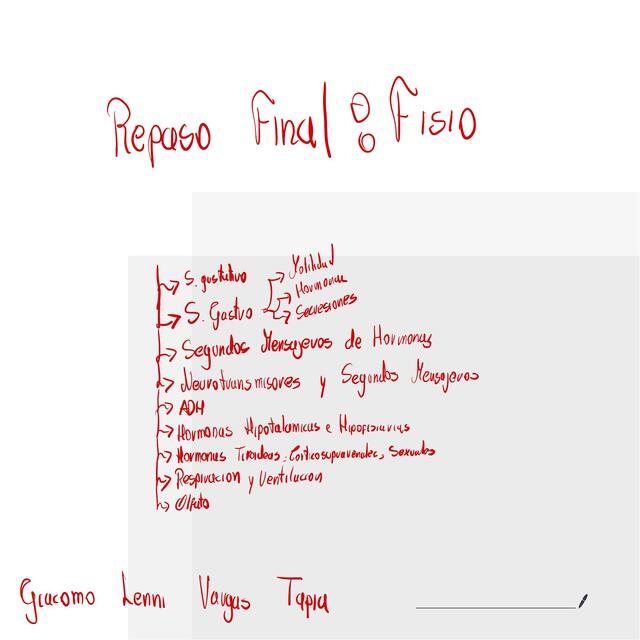 Repaso Final : Fisio
S. gustativo
S. Gastro
Motilidad
Hormonas
Secresiones
Segundos Mensajeros de Hormonas
Neurotransmisores y Segundos Mensajeros
ADH
Hormonas Hipotalamicas e Hipofisiarias
Hormonas Tiroideas, Corticosuprarrenales, Sexuales
Respiracion y Ventilacion
Olfato
Giacomo Lenni Vargas Tapia